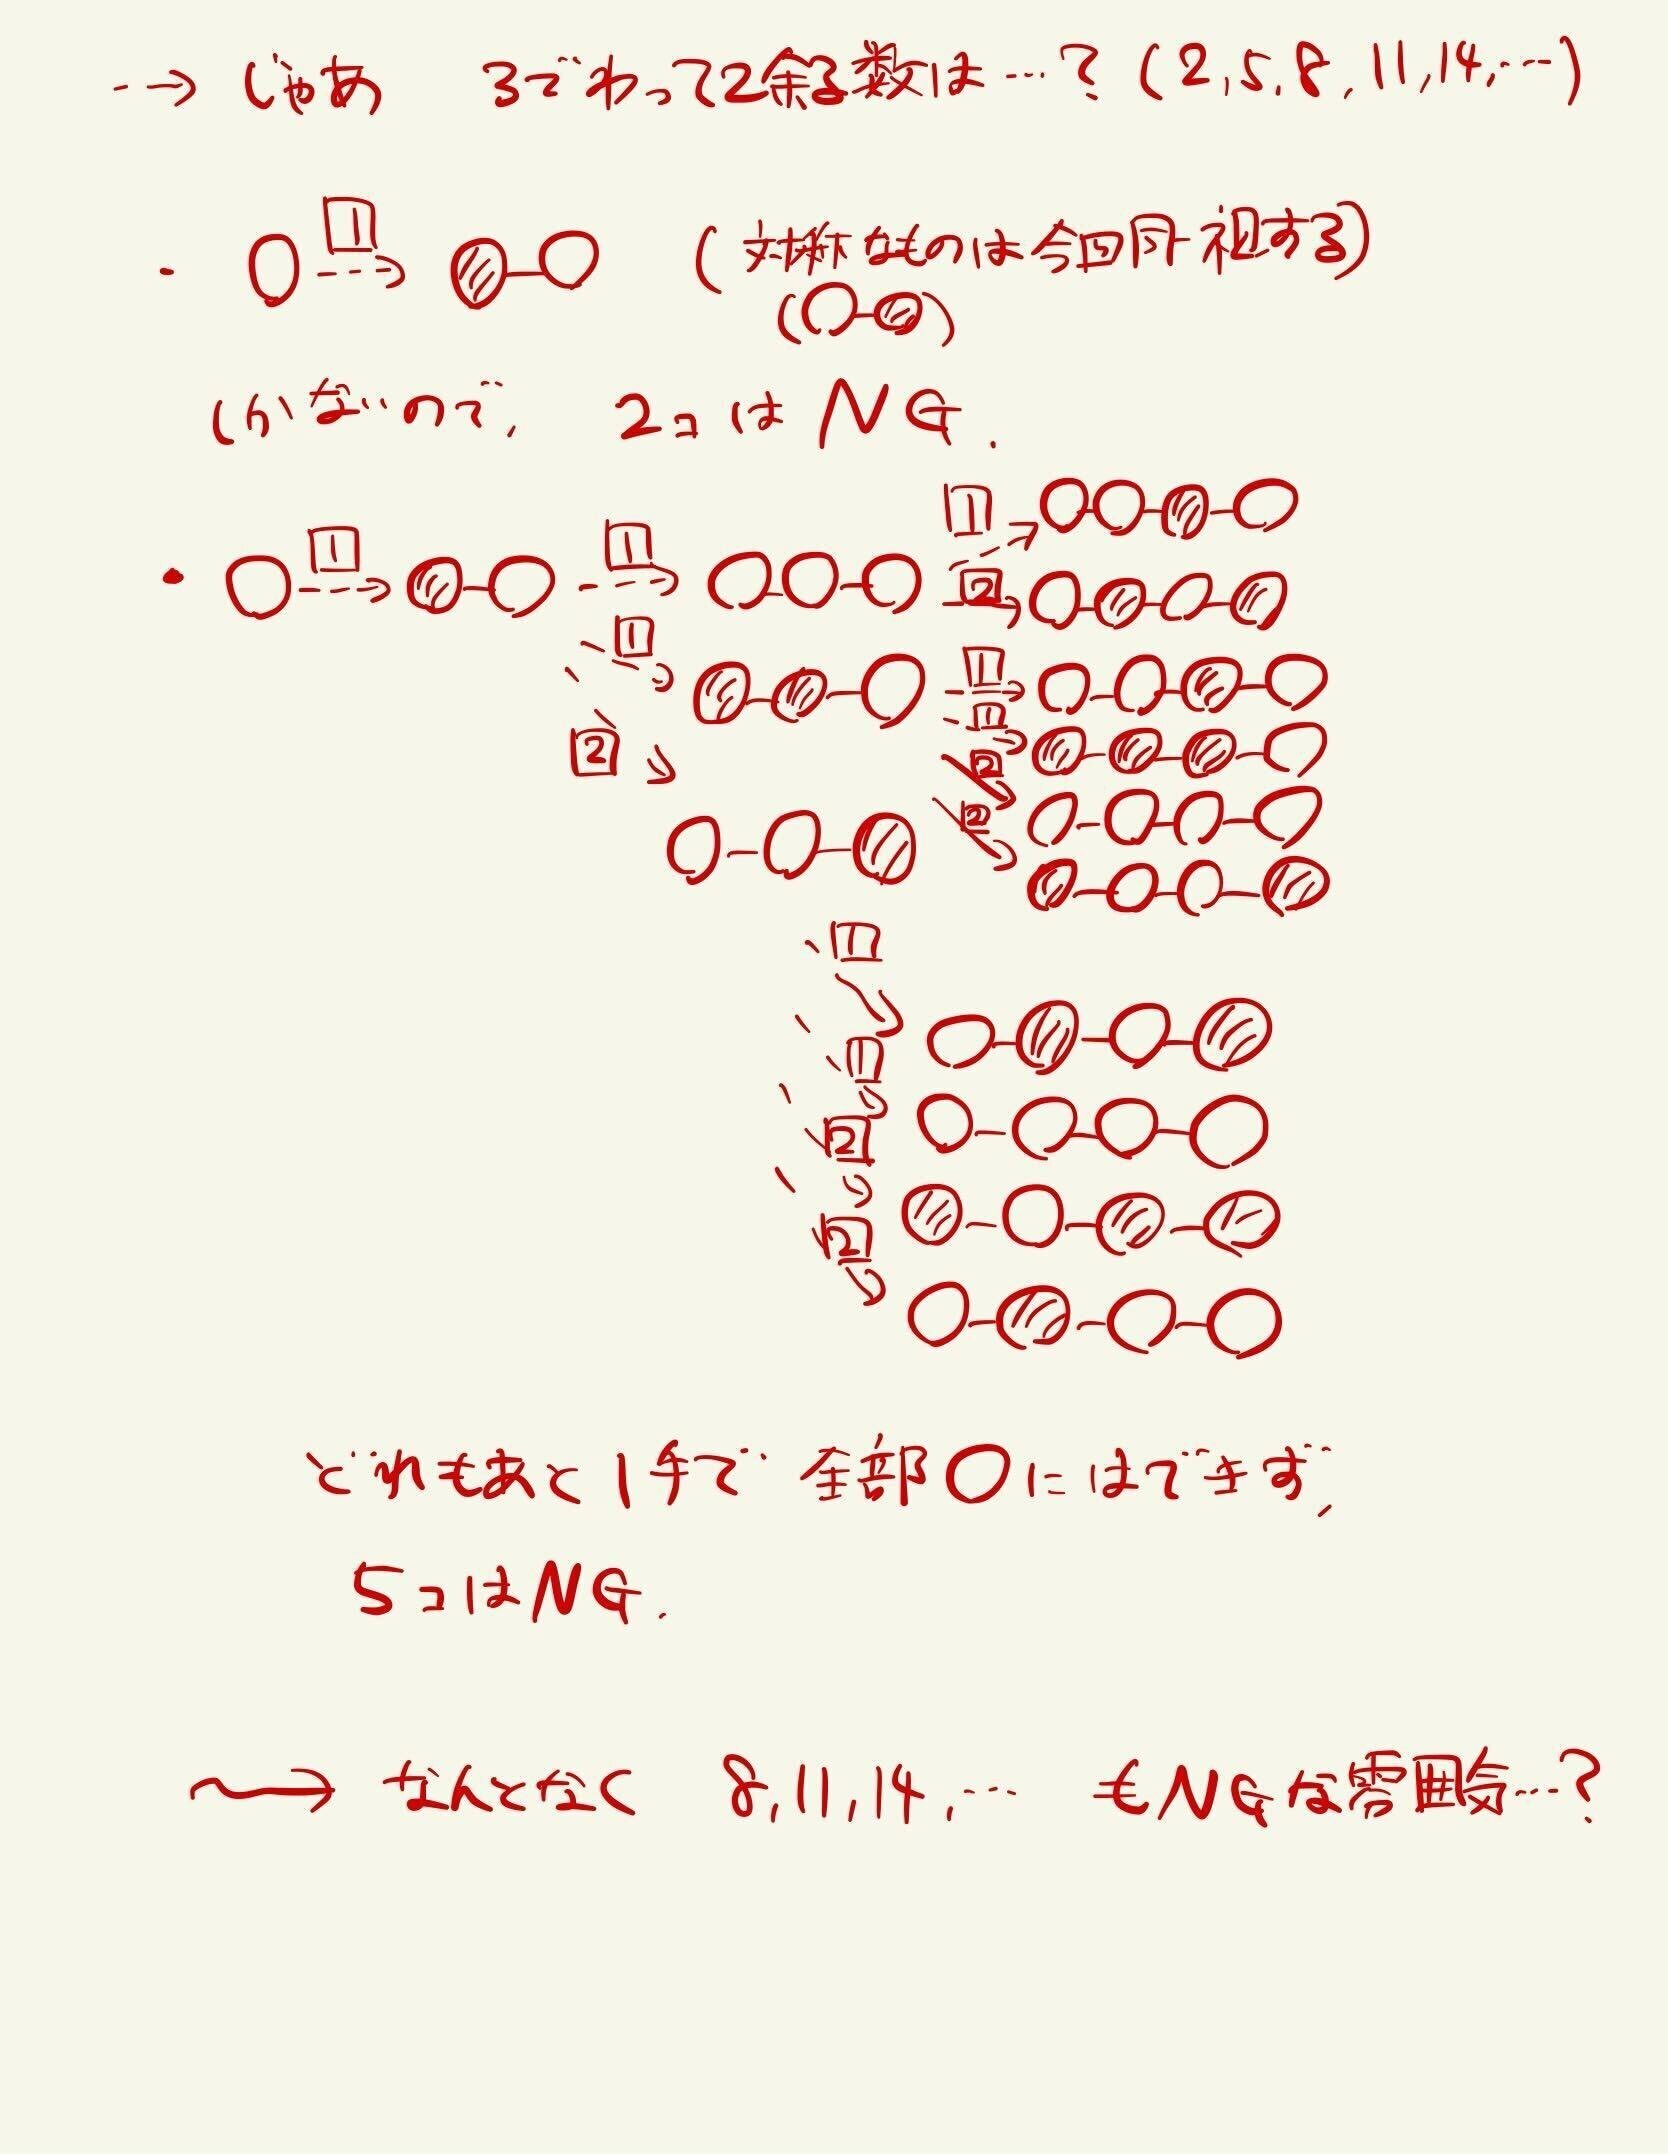 --→ じゃあ 3でわって2余る数は…? (2,5,8,11,14,…)
1
(対称なものは今回同一視する)
しかないので、 2コは NG.
1
1
1
2
1
2
1
1
2
2
1
1
2
2
どれもあと1手で 全部○にはできず、
5コはNG.
〜→ なんとなく 8,11,14,… もNGな雰囲気…?